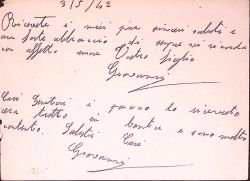 3/5/42
Ricevete i miei più sinceri saluti e
un forte abbraccio di sempre vi ricorda
con affetto vostro figlio
Giovanni
Cari Genitori il pacco lo ricevuto
era tutto in bontà e sono molto
contento. Saluti Cari
Giovanni